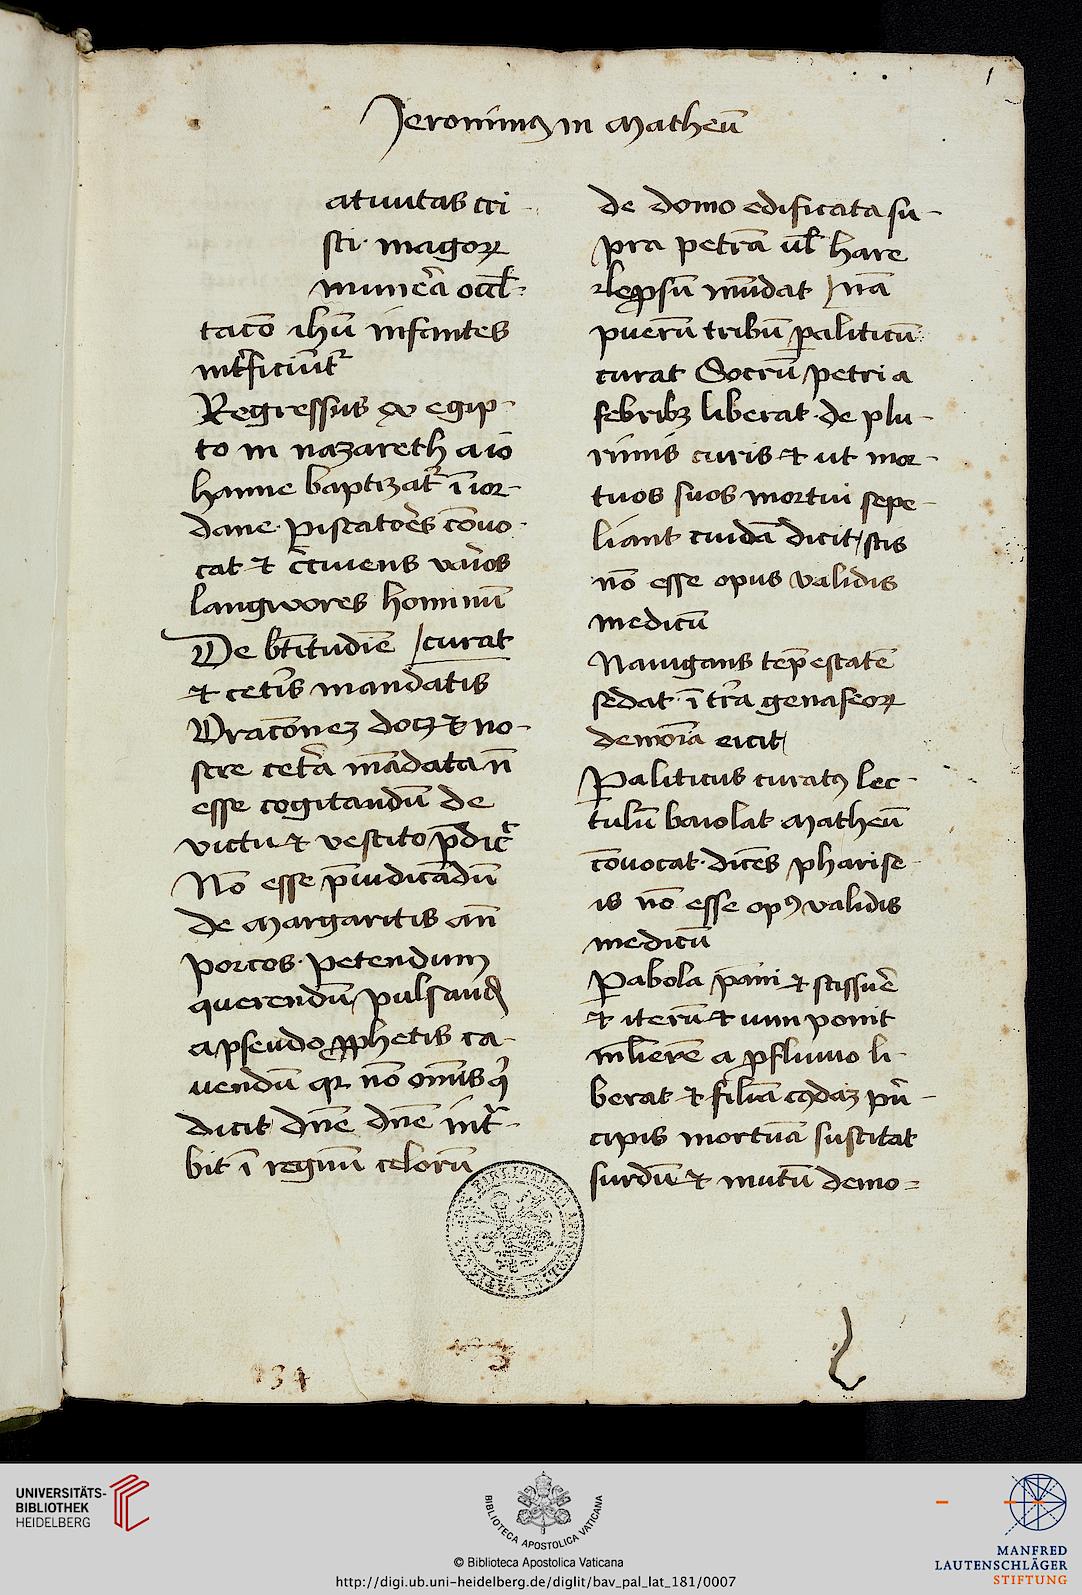 1
Jeronimꝰ in Matheū
atiuitas cri
sti· magoꝝ
munēa occl̄
tacō ihū infantes
int̄ficiūtᷣ
Regressus ex egip
to in nazareth a iō
hanne baptizatᷣ ī ior
dane piscatōes cōuo
cat ⁊ c̄cuiens va᷑ios
langwores hominū
De bt̄itudīe /curat
⁊ cet̄is mandatis
Oracōnez docꝫ ⁊ no
scre cet̄a mādata n̄
esse cogitandū de
victu ⁊ vestito p̄dicᷣ
Nō esse p̄iudicādū
de margaritis an̄
porcos· petendum
querendū pulsand̄
a pseudo ꝓphetis ca
uendū qꝛ nō om̄is q᷑
dicit dn̄e dn̄e int̄
bit ī regnū celorū
de domo edificata su
pra petrā ul̄ hare
lepsū mūdat /nā
puerū tribū paliticū
curat Socrū petri a
febribꝫ liberat· de plu
rimis curis ⁊ ut mor
tuos suos mortui sepe
liant cuidā dicit/ scis
nō esse opus validis
medicū
Nauigans tēpestatē
sedat· ī t̄ra genaseoꝝ
demōia eicit/
Paliticus curatꝰ lec
tulū baiolat Matheū
cōuocat· dicēs pharise
is nō esse opꝰ validis
medicū
Pabola pāni ⁊ scissuē
⁊ iterū ⁊ uini ponit
ml̄ierē a ꝓfluuio li
berat ⁊ filiā cꝰdaꝫ pᷣn
cipis mortuā suscitat
surdū ⁊ mutū demo=
134
UNIVERSITÄTS-
BIBLIOTHEK
HEIDELBERG
BIBLIOTECA APOSTOLICA VATICANA
© Biblioteca Apostolica Vaticana
http://digi.ub.uni-heidelberg.de/diglit/bav_pal_lat_181/0007
MANFRED
LAUTENSCHLÄGER
STIFTUNG